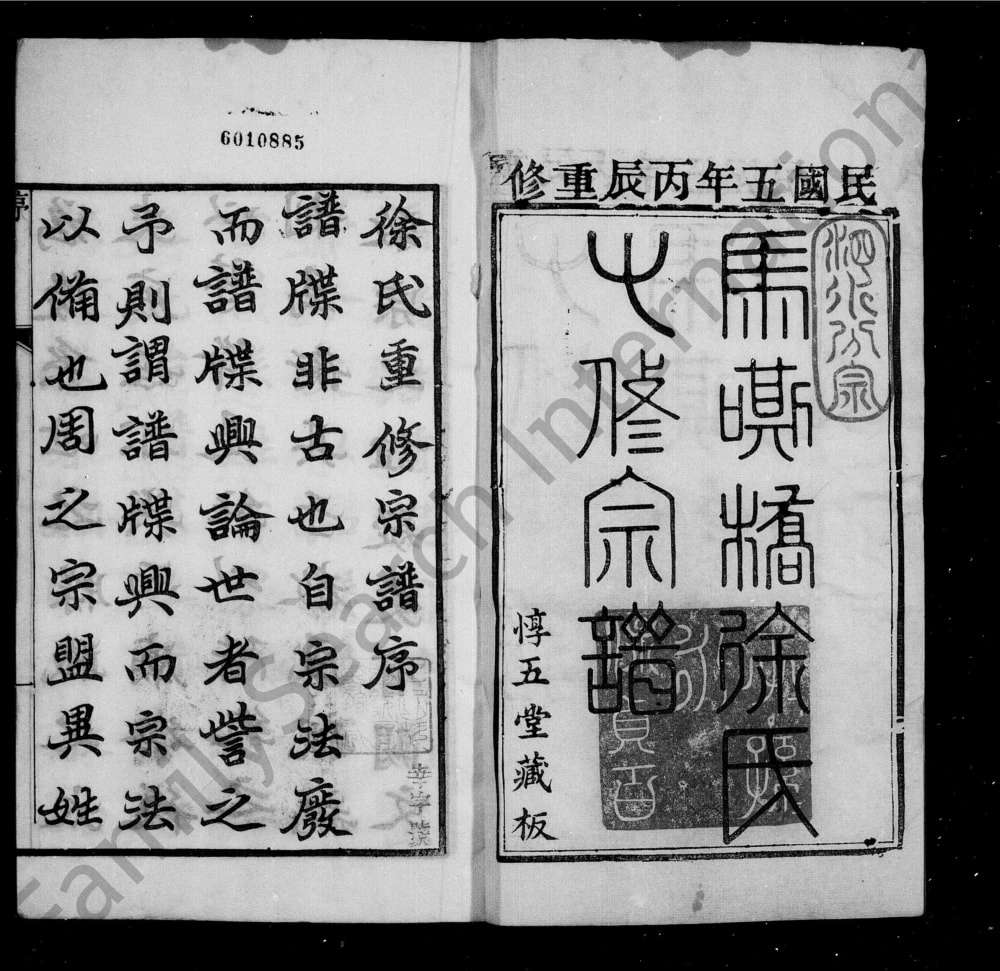 民國五年丙辰重修
馬嘶橋徐氏
七修宗譜
惇五堂藏板
泗水分宗
6010885
徐氏重修宗譜序
譜牒非古也自宗法廢
而譜牒興論世者訾之
予則謂譜牒興而宗法
以備也周之宗盟異姓
序
幸字號
FamilySearch International